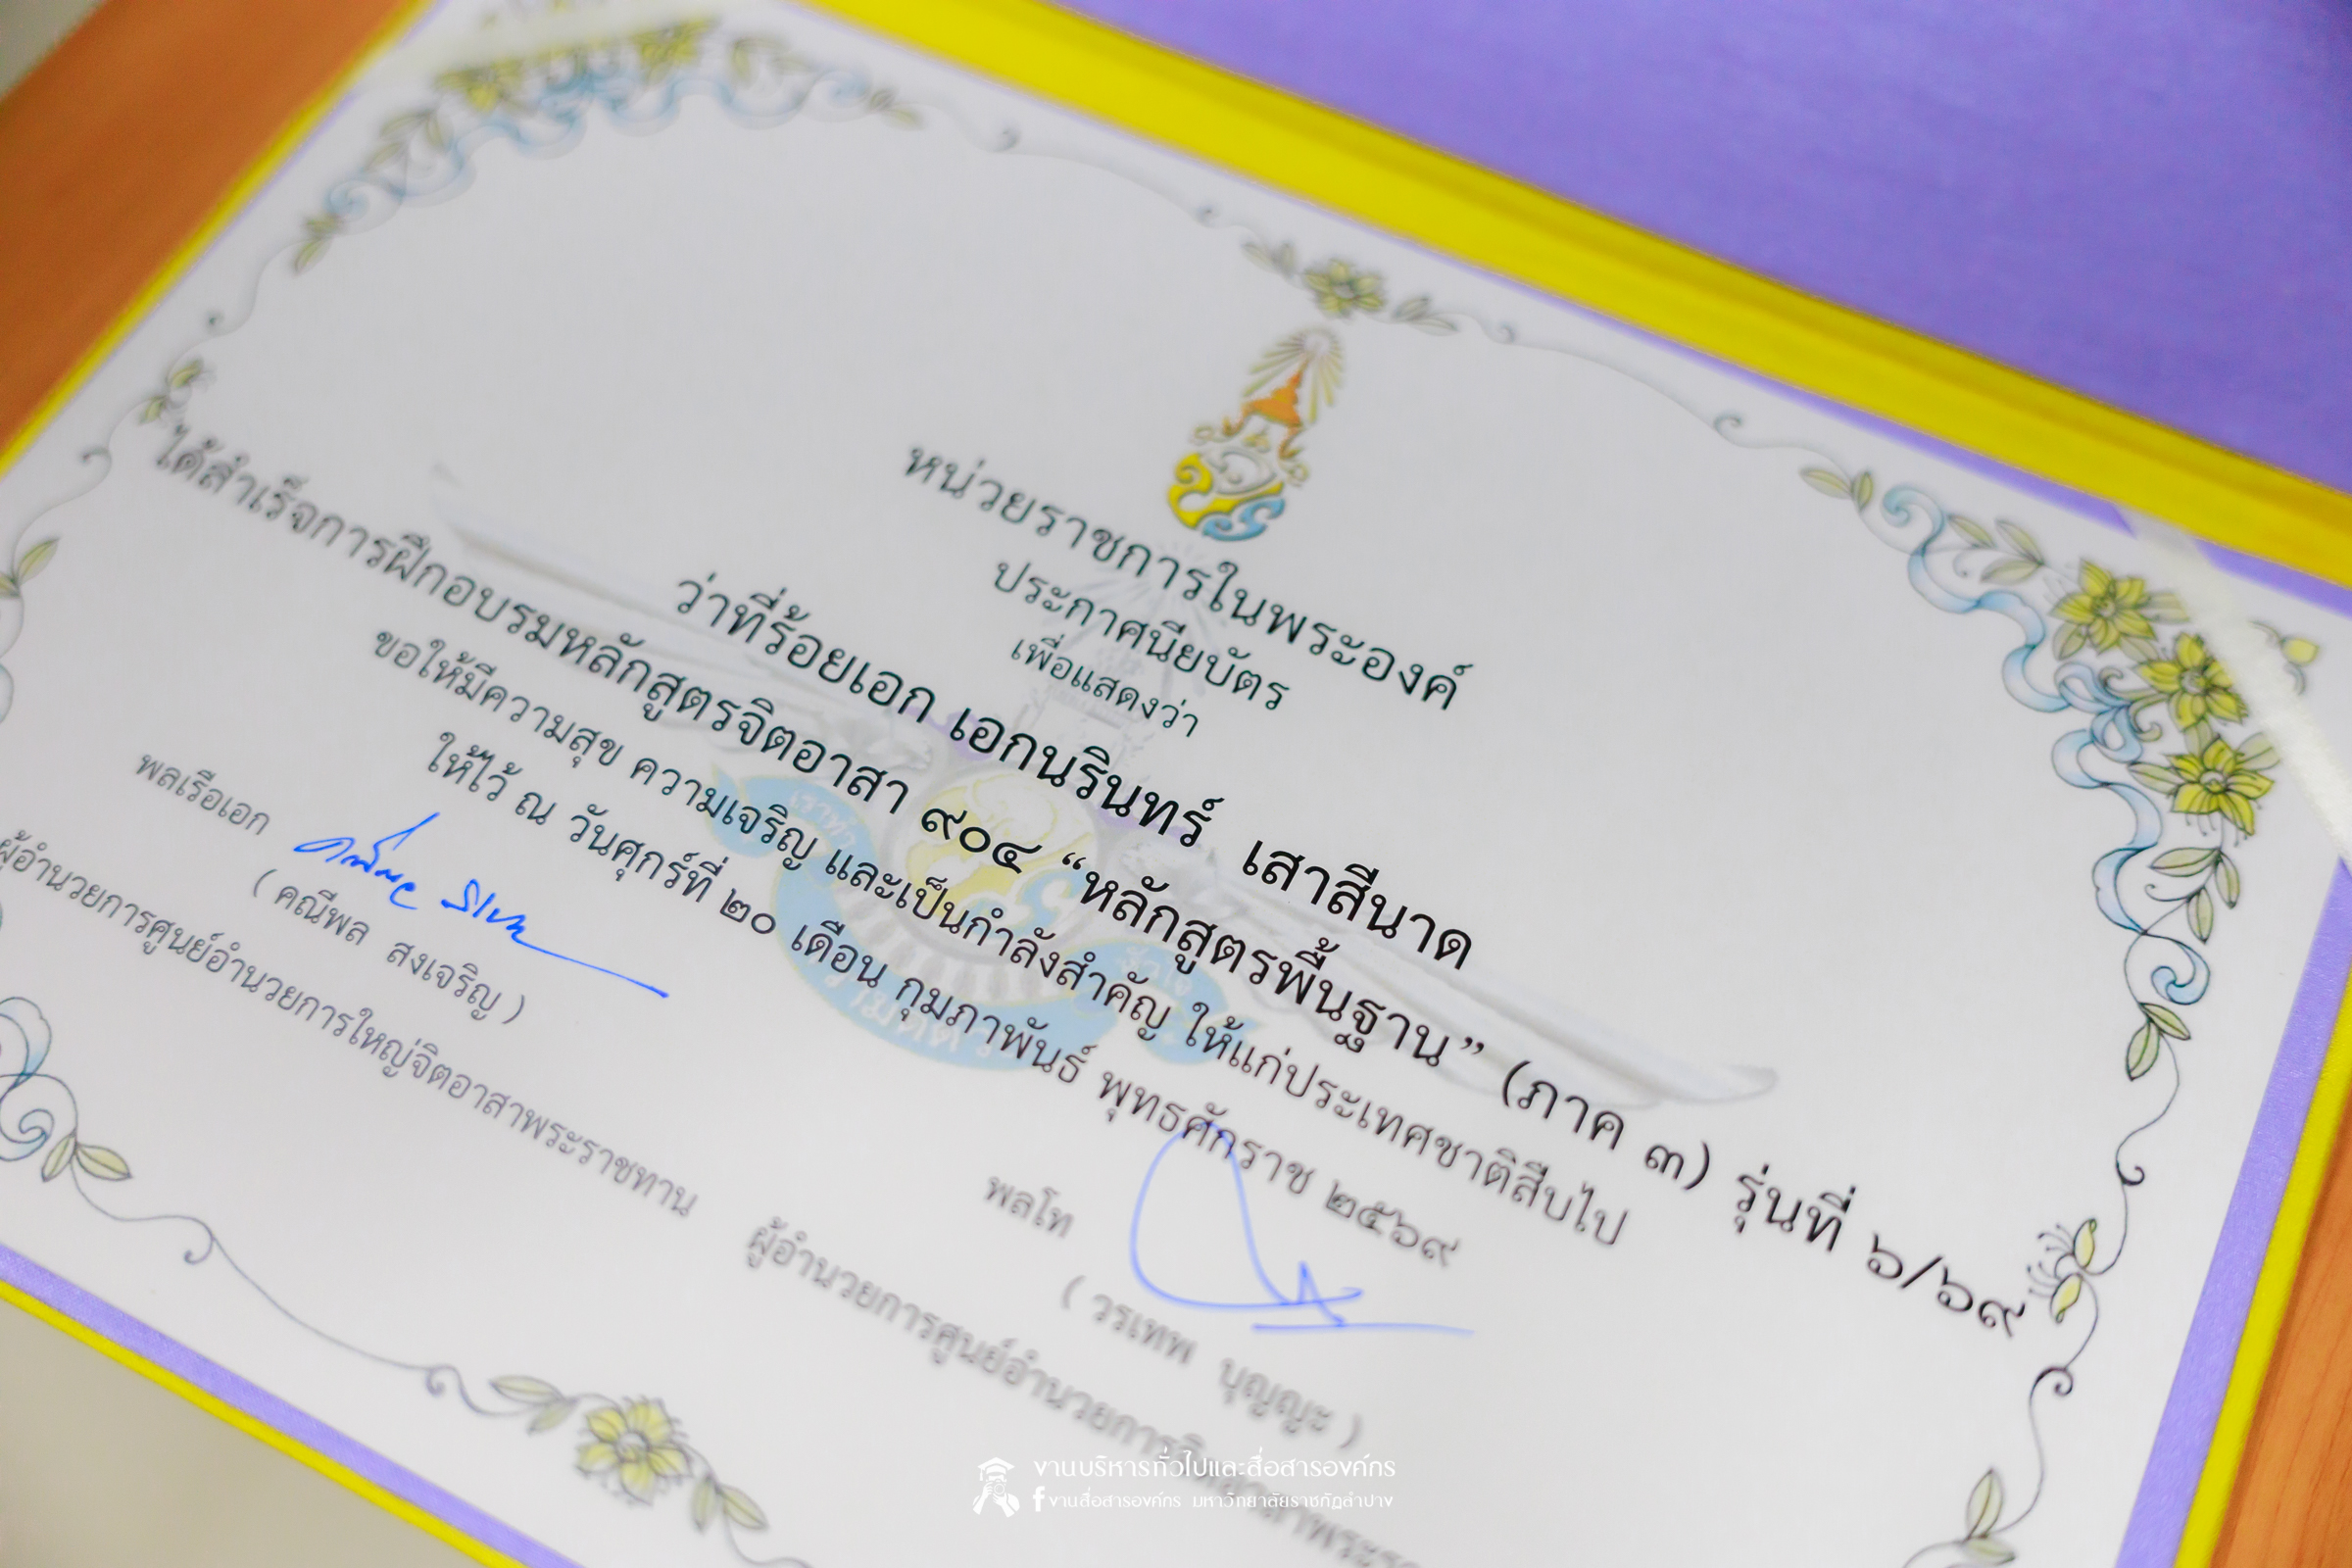 หน่วยราชการในพระองค์
ประกาศนียบัตร
เพื่อแสดงว่า
ว่าที่ร้อยเอก เอกนรินทร์ เสาสีนาด
ได้สำเร็จการฝึกอบรมหลักสูตรจิตอาสา ๙๐๔ “หลักสูตรพื้นฐาน” (ภาค ๓) รุ่นที่ ๖/๖๙
ขอให้มีความสุข ความเจริญ และเป็นกำลังสำคัญ ให้แก่ประเทศชาติสืบไป
ให้ไว้ ณ วันศุกร์ที่ ๒๐ เดือน กุมภาพันธ์ พุทธศักราช ๒๕๖๙
พลเรือเอก
( คณีพล สงเจริญ )
ผู้อำนวยการศูนย์อำนวยการใหญ่จิตอาสาพระราชทาน
พลโท
( วรเทพ บุญญะ )
ผู้อำนวยการศูนย์อำนวยการ
งานบริหารทั่วไปและสื่อสารองค์กร
งานสื่อสารองค์กร มหาวิทยาลัยราชภัฏลำปาง